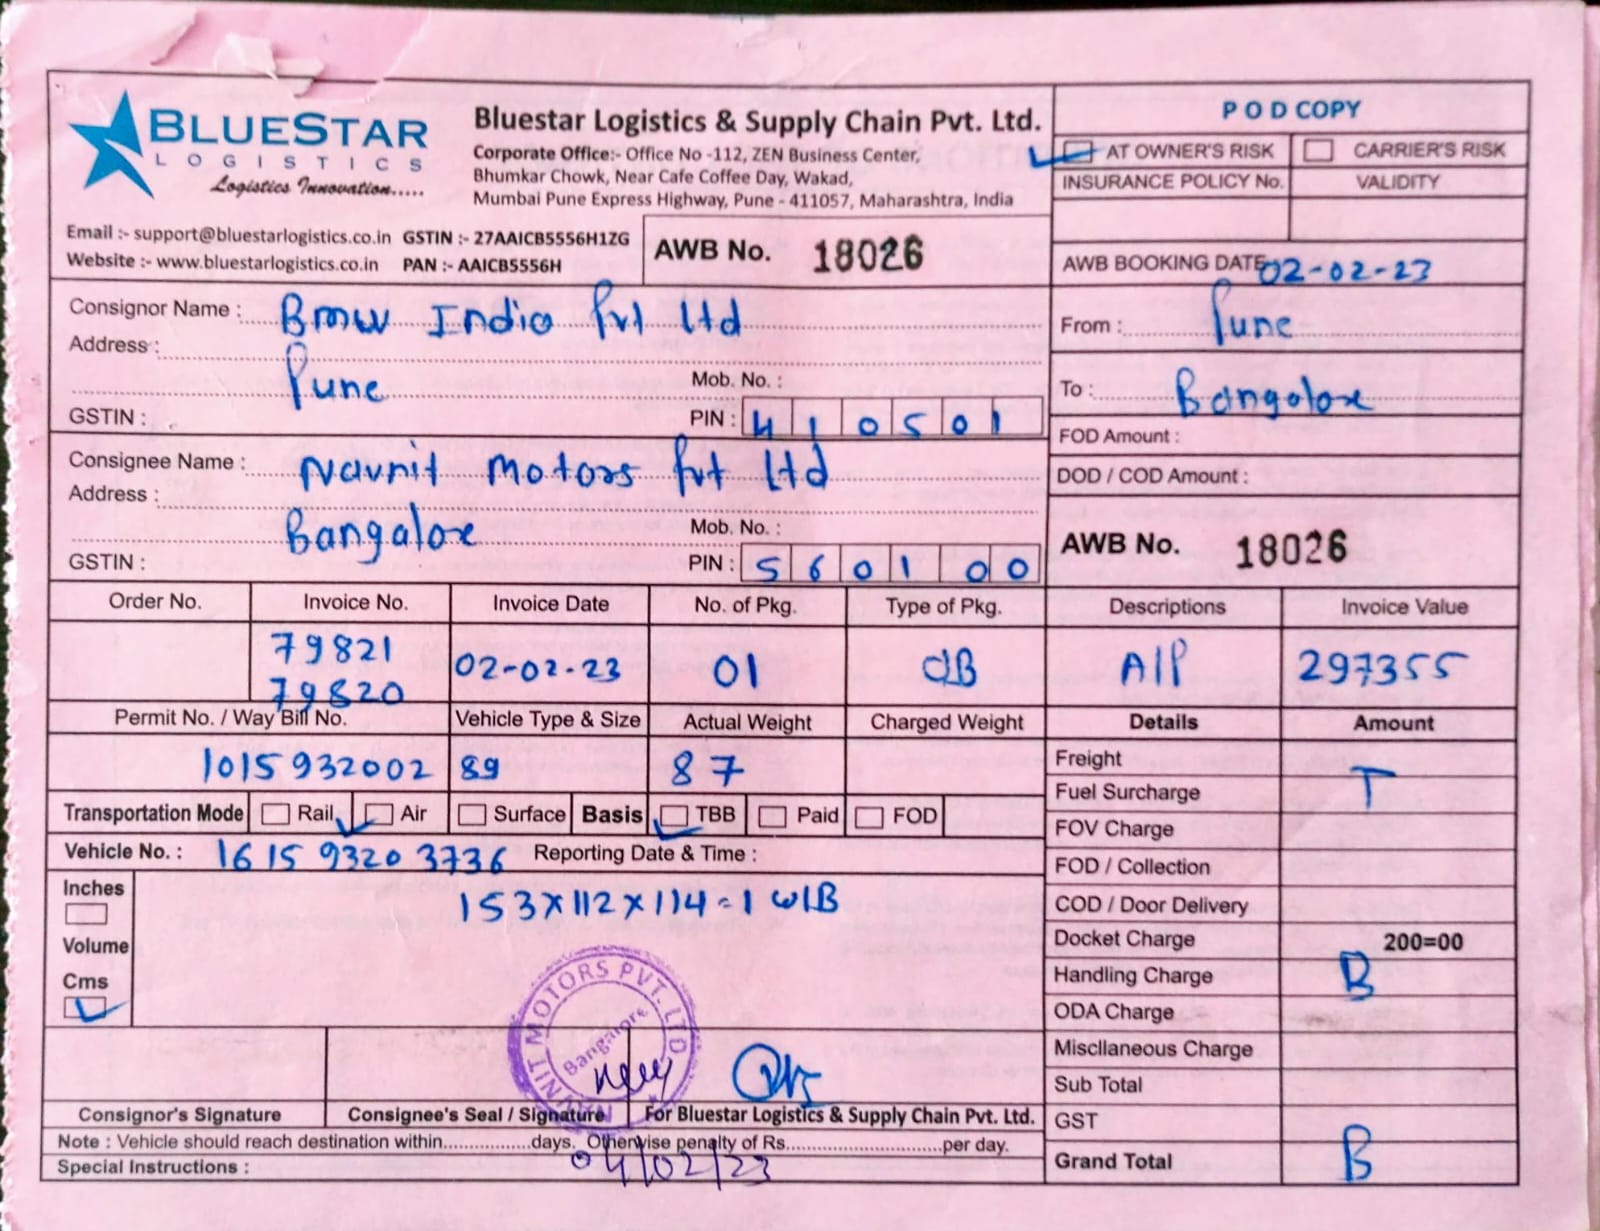 BLUESTAR
LOGISTICS
Logistics Innovation.....
Bluestar Logistics & Supply Chain Pvt. Ltd.
Corporate Office:- Office No -112, ZEN Business Center,
Bhumkar Chowk, Near Cafe Coffee Day, Wakad,
Mumbai Pune Express Highway, Pune - 411057, Maharashtra, India
Email :- support@bluestarlogistics.co.in GSTIN :- 27AAICB5556H1ZG
Website :- www.bluestarlogistics.co.in PAN :- AAICB5556H
AWB No. 18026
POD COPY
AT OWNER'S RISK CARRIER'S RISK
INSURANCE POLICY No. VALIDITY
AWB BOOKING DATE 02-02-23
From : Pune
To : Bangalore
FOD Amount :
DOD / COD Amount :
AWB No. 18026
Consignor Name : Bmw India Pvt Ltd
Address :
Pune Mob. No. :
GSTIN : PIN : 410501
Consignee Name : Navnit Motors Pvt Ltd
Address :
Bangalore Mob. No. :
GSTIN : PIN : 560100
Order No. Invoice No. Invoice Date No. of Pkg. Type of Pkg. Descriptions Invoice Value
79821
79820 02-02-23 01 CB A/P 297355
Permit No. / Way Bill No. Vehicle Type & Size Actual Weight Charged Weight Details Amount
1015932002 89 87
Transportation Mode Rail Air Surface Basis TBB Paid FOD
Vehicle No. : 1615 9320 3736 Reporting Date & Time :
Inches
Volume
Cms
153x112x114=1 W/B
Freight
Fuel Surcharge T
FOV Charge
FOD / Collection
COD / Door Delivery
Docket Charge 200=00
Handling Charge B
ODA Charge
Miscllaneous Charge
Sub Total
GST
Grand Total B
NAVNIT MOTORS PVT. LTD
Bangalore
Consignor's Signature Consignee's Seal / Signature For Bluestar Logistics & Supply Chain Pvt. Ltd.
Note : Vehicle should reach destination within.................days. Otherwise penalty of Rs............................per day.
04/02/23
Special Instructions :